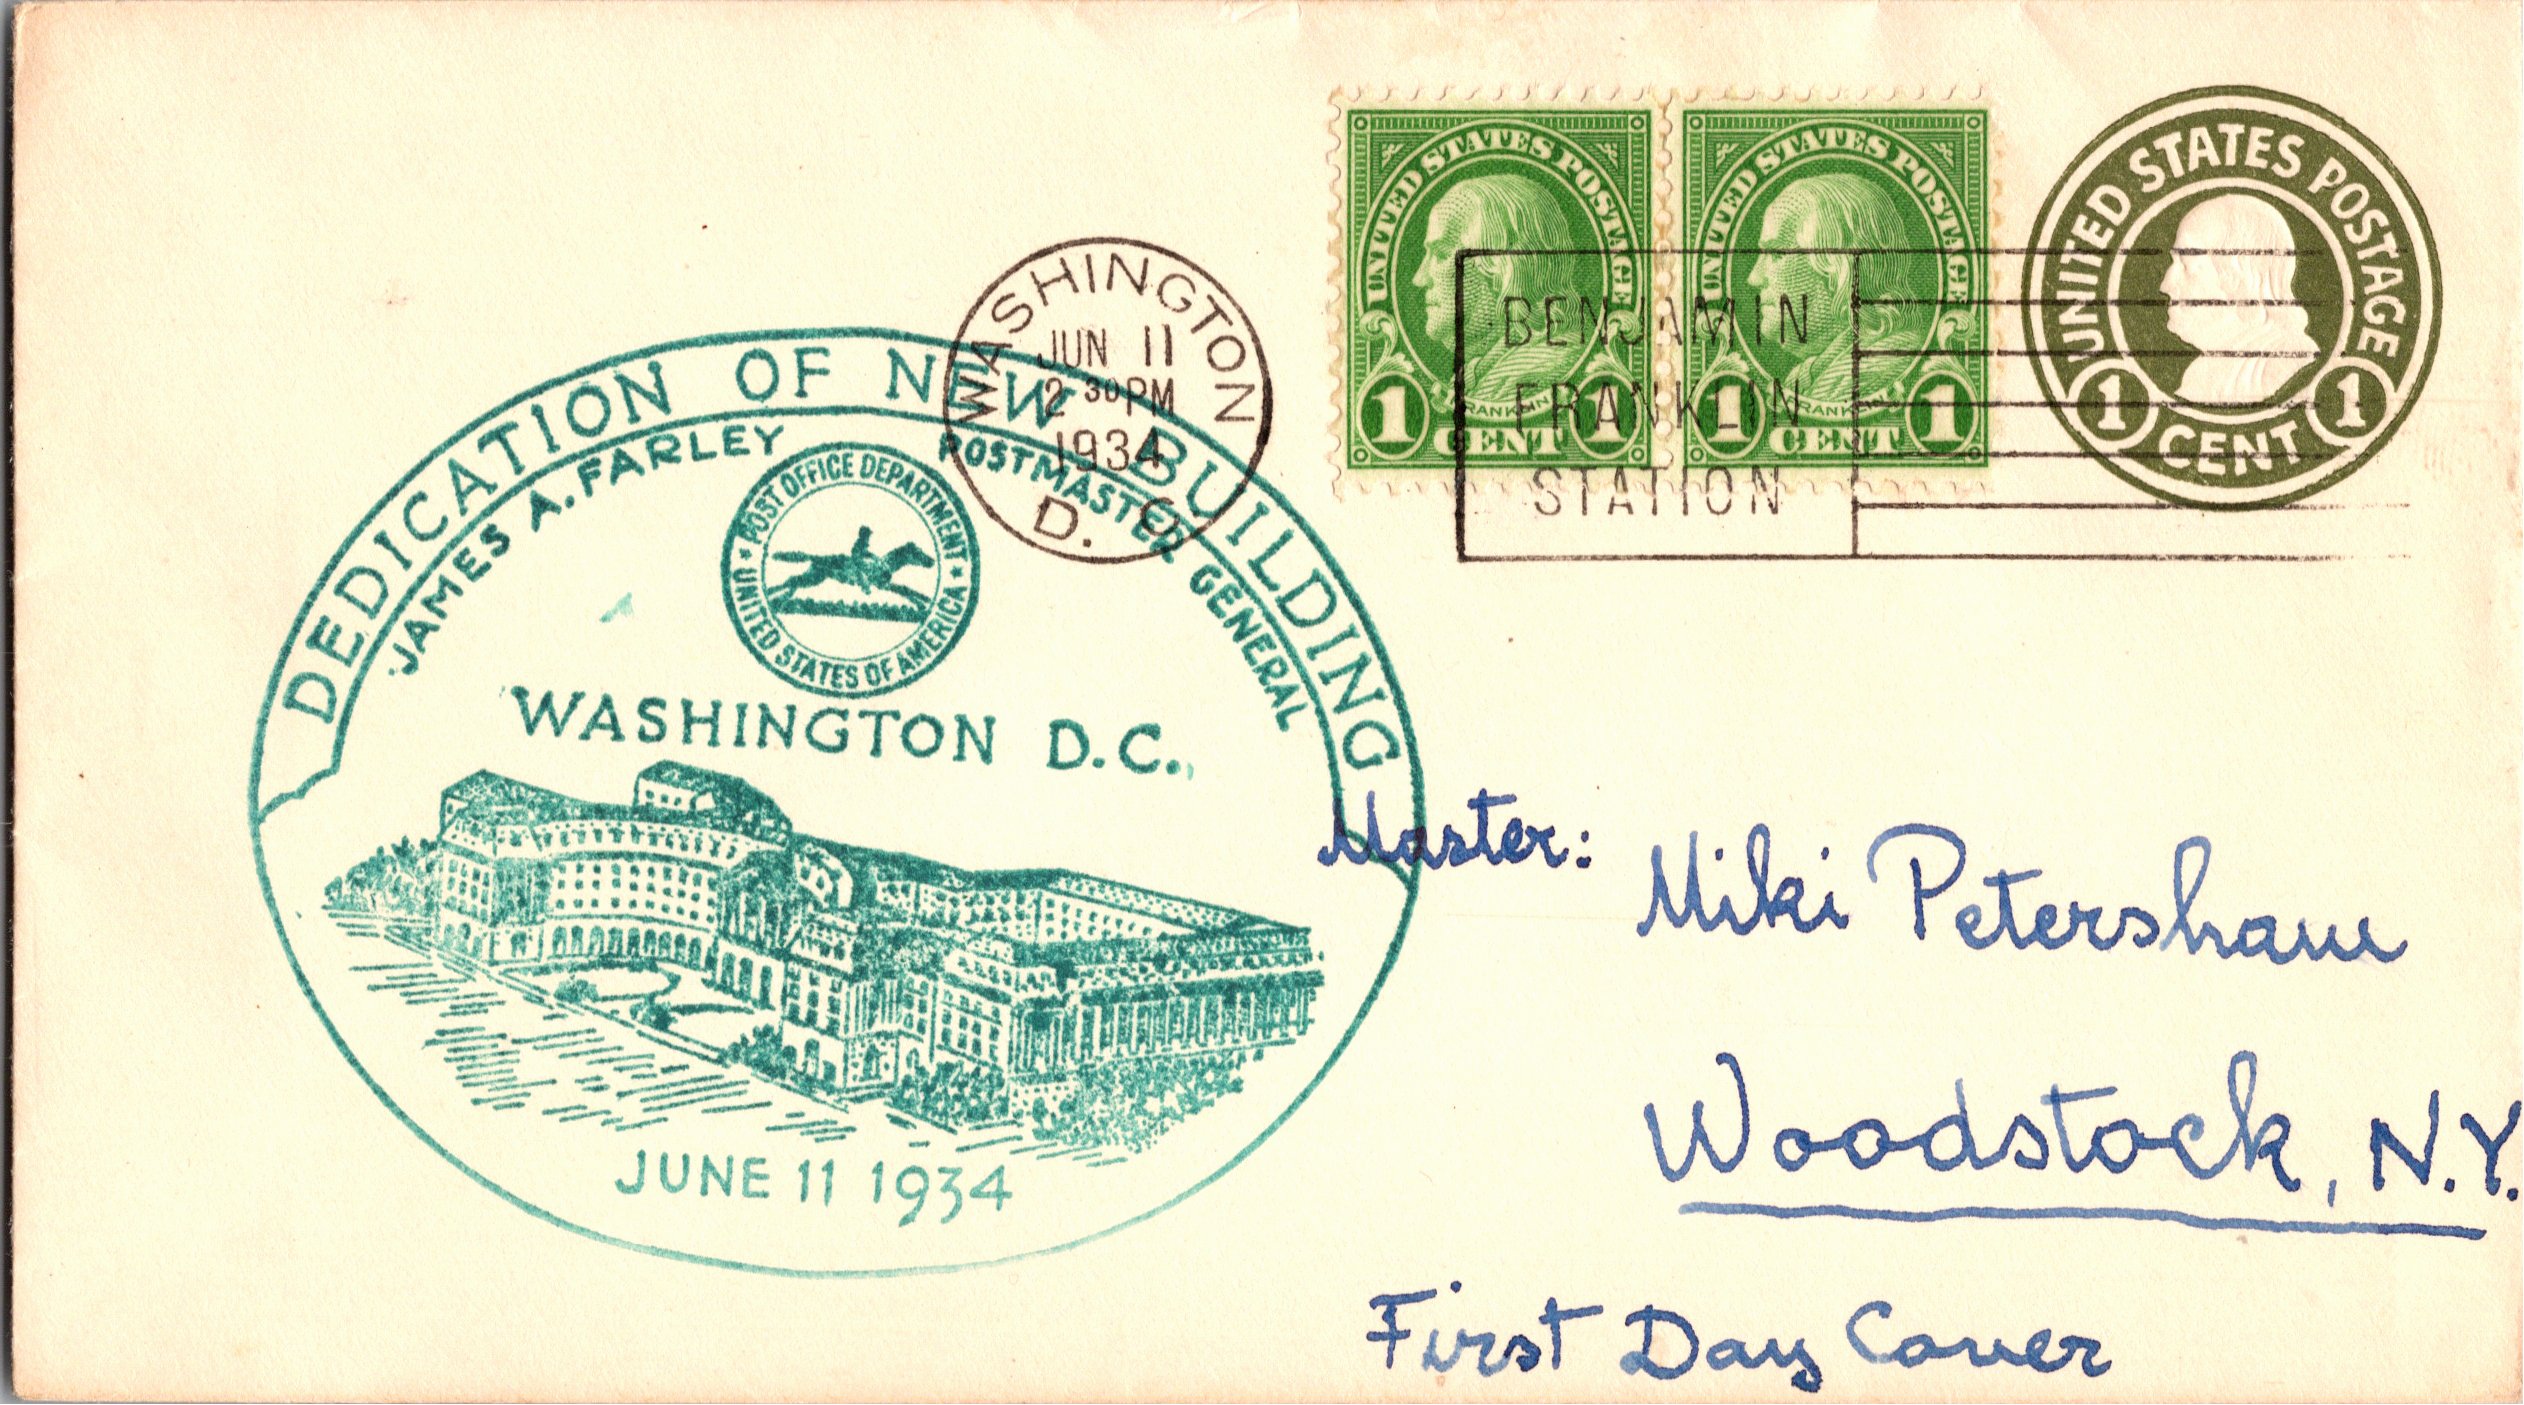 UNITED STATES POSTAGE
FRANKLIN
1 CENT 1
UNITED STATES POSTAGE
FRANKLIN
1 CENT 1
UNITED STATES POSTAGE
1 CENT 1
WASHINGTON
JUN 11
2 30 PM
1934
D. C.
BENJAMIN
FRANKLIN
STATION
DEDICATION OF NEW BUILDING
JAMES A. FARLEY POSTMASTER GENERAL
POST OFFICE DEPARTMENT
UNITED STATES OF AMERICA
WASHINGTON D.C.,
JUNE 11 1934
Master:
Miki Petersham
Woodstock, N.Y.
First Day Cover